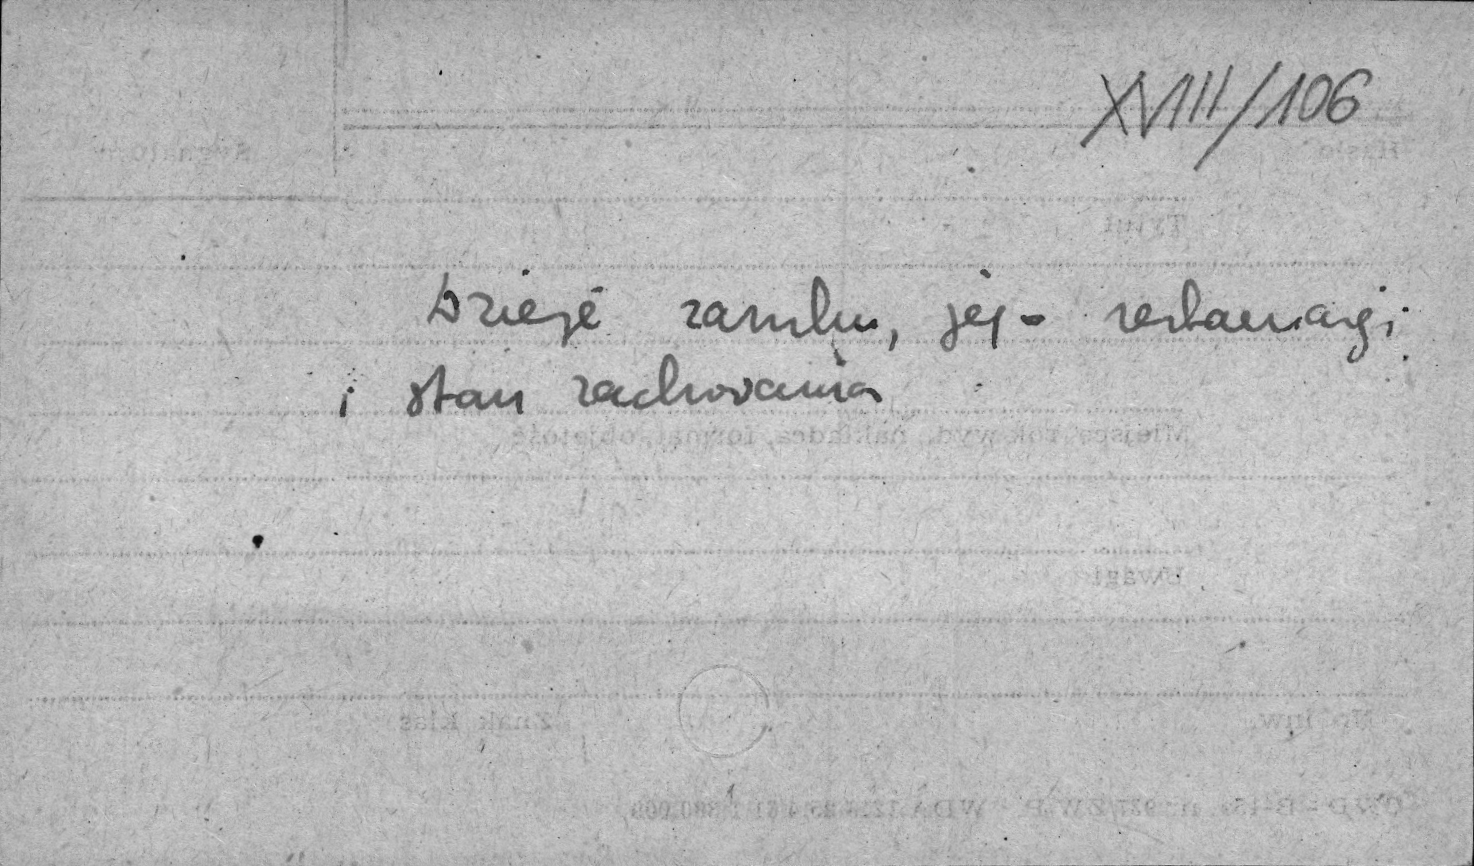 XVIII/106
Dzieje zamku, jego restauracji
i stan zachowania
Hasło
Tytuł
Miejsce, rok wyd., nakładca, format, objętość
Uwagi
Nr inw. Znak klas